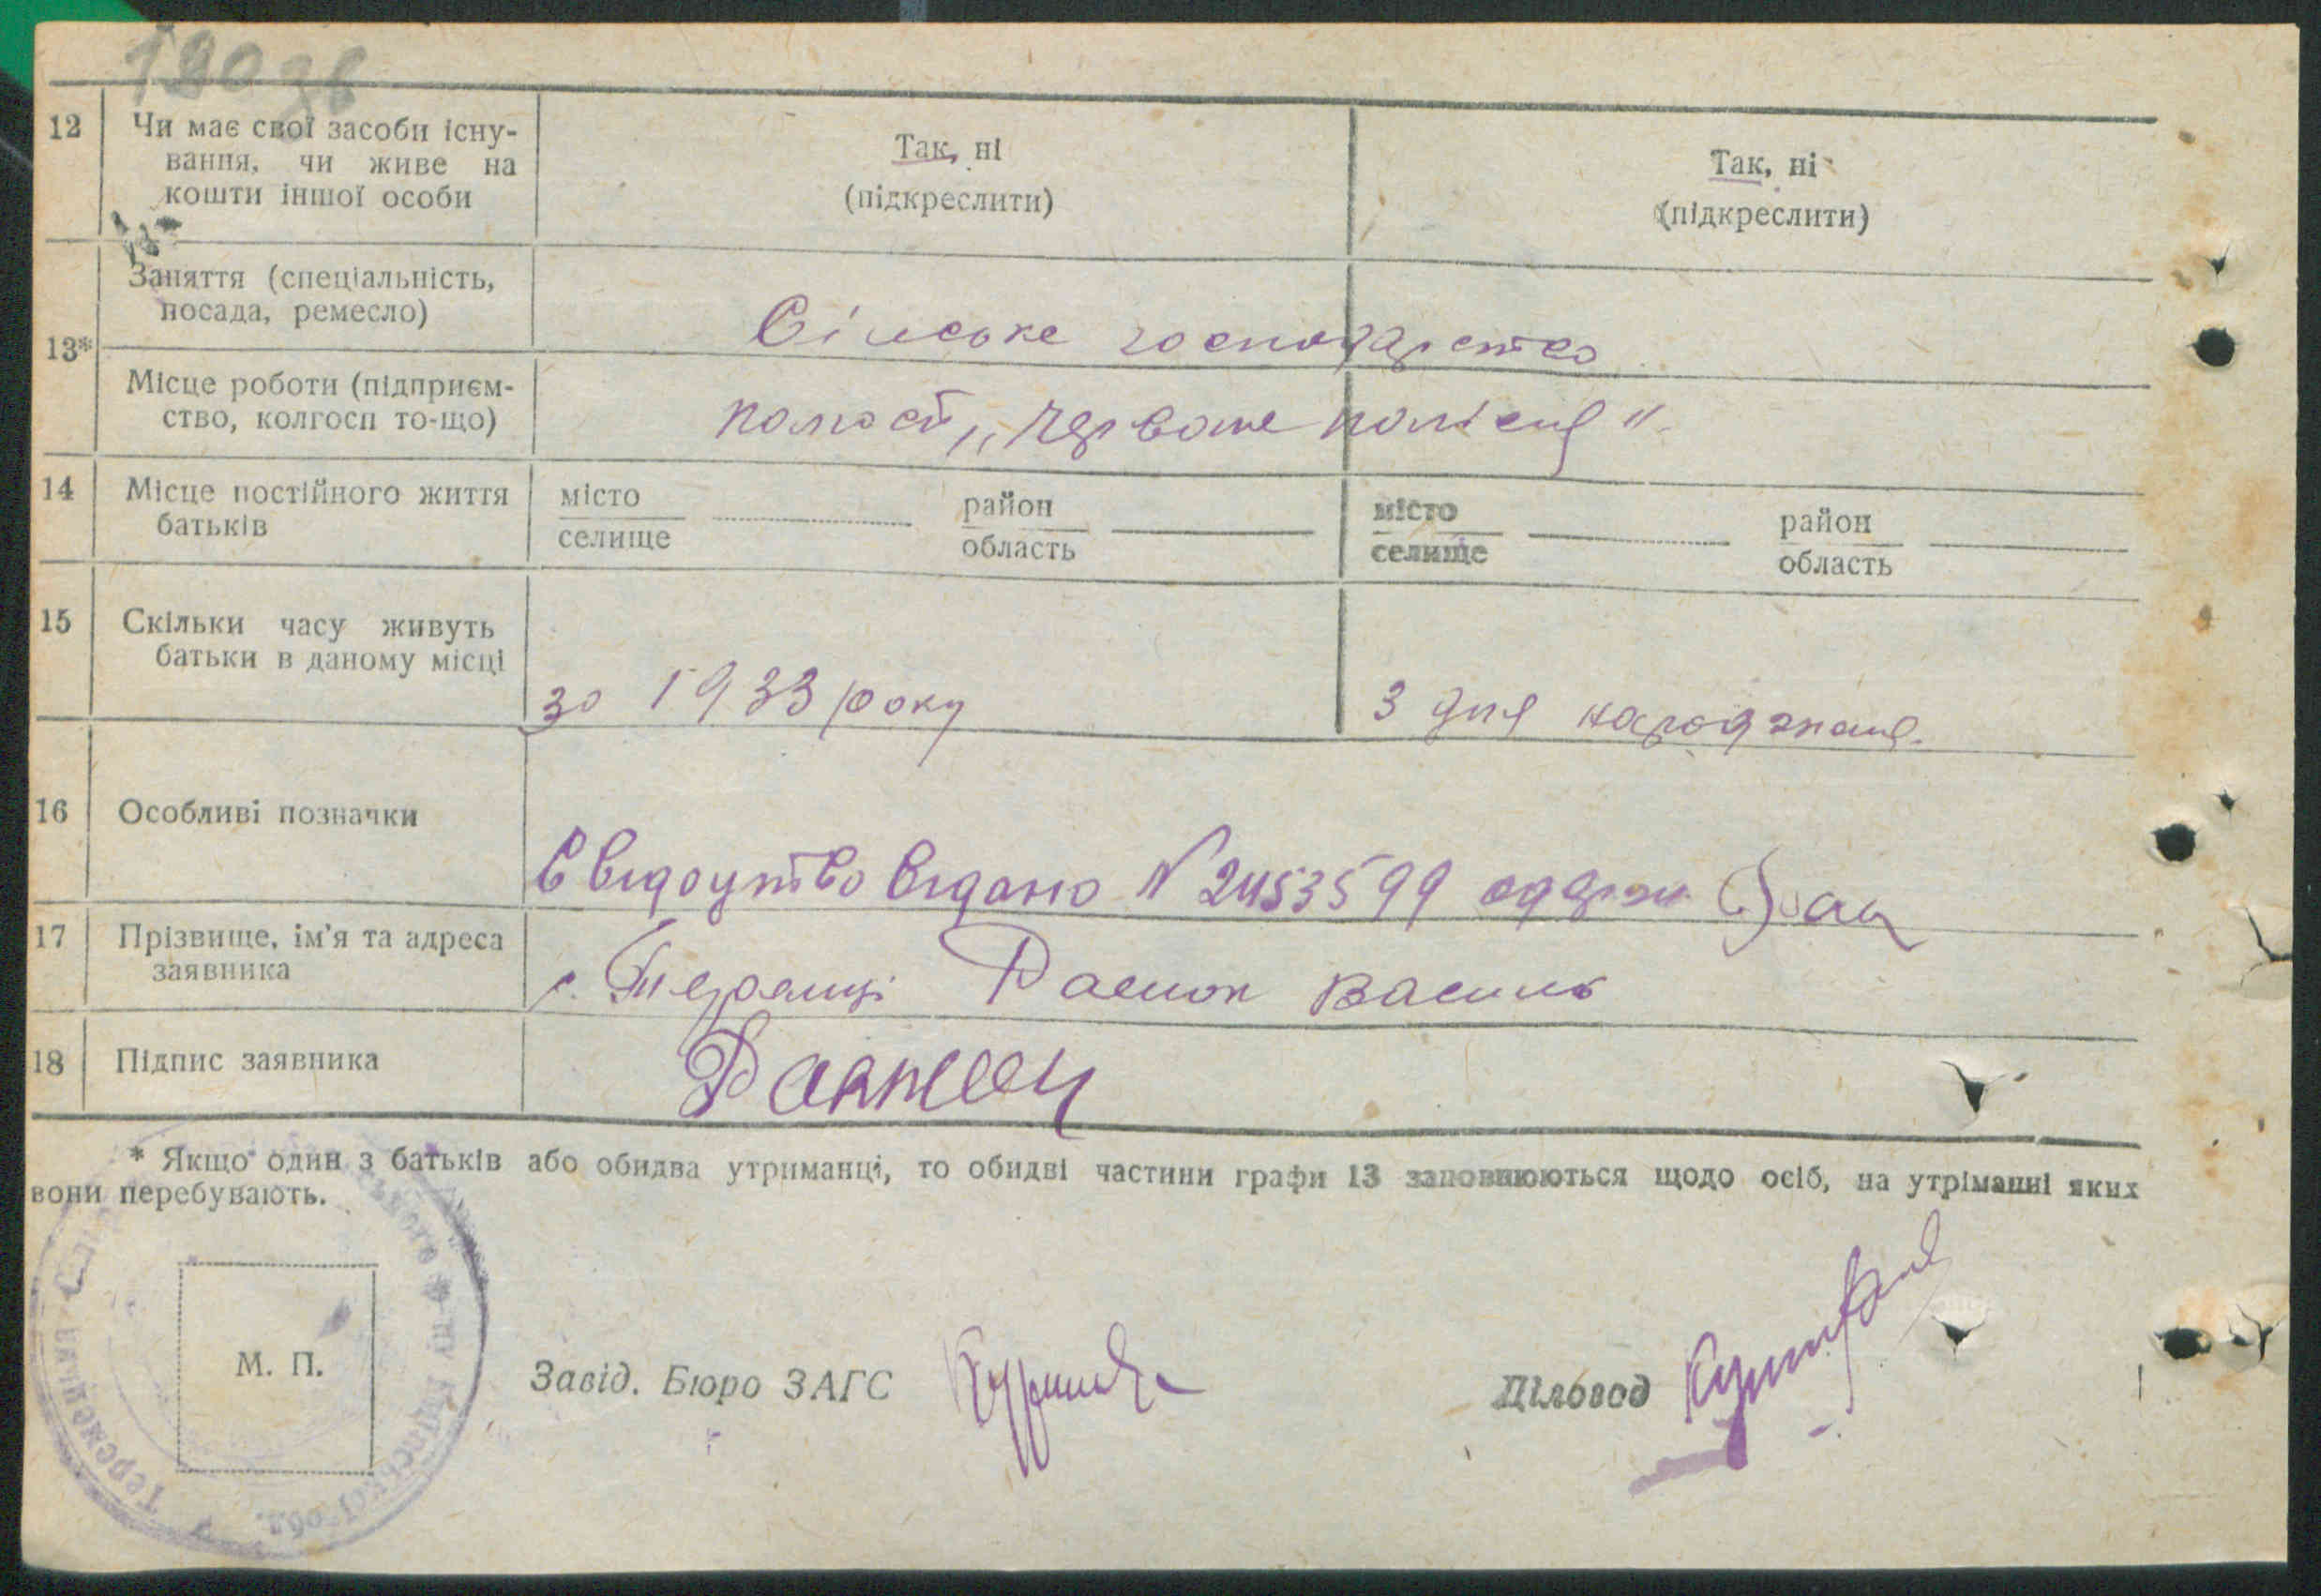 190зв
12 Чи має свої засоби існу-
вання, чи живе на
кошти іншої особи
Так, ні
(підкреслити)
Так, ні
(підкреслити)
13*
Заняття (спеціальність,
посада, ремесло)
Сільське господарство
Місце роботи (підприєм-
ство, колгосп то-що)
колгосп „Червоне полісся"
14 Місце постійного життя
батьків
місто
селище
район
область
місто
селище
район
область
15 Скільки часу живуть
батьки в даному місці
зо 1933 року
З дня народження.
16 Особливі позначки
Свідоцтво видано N 2453599
17 Прізвище, ім'я та адреса
заявника
с. Василь
18 Підпис заявника
* Якщо один з батьків або обидва утриманці, то обидві частини графи 13 заповнюються щодо осіб, на утріманні яких
вони перебувають.
М. П.
Завід. Бюро ЗАГС
Діловод